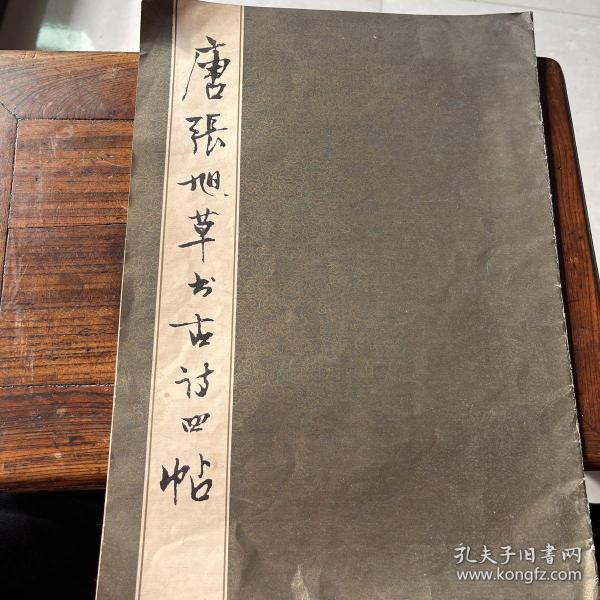 唐張旭草书古诗四帖
孔夫子旧書网
www.kongfz.com